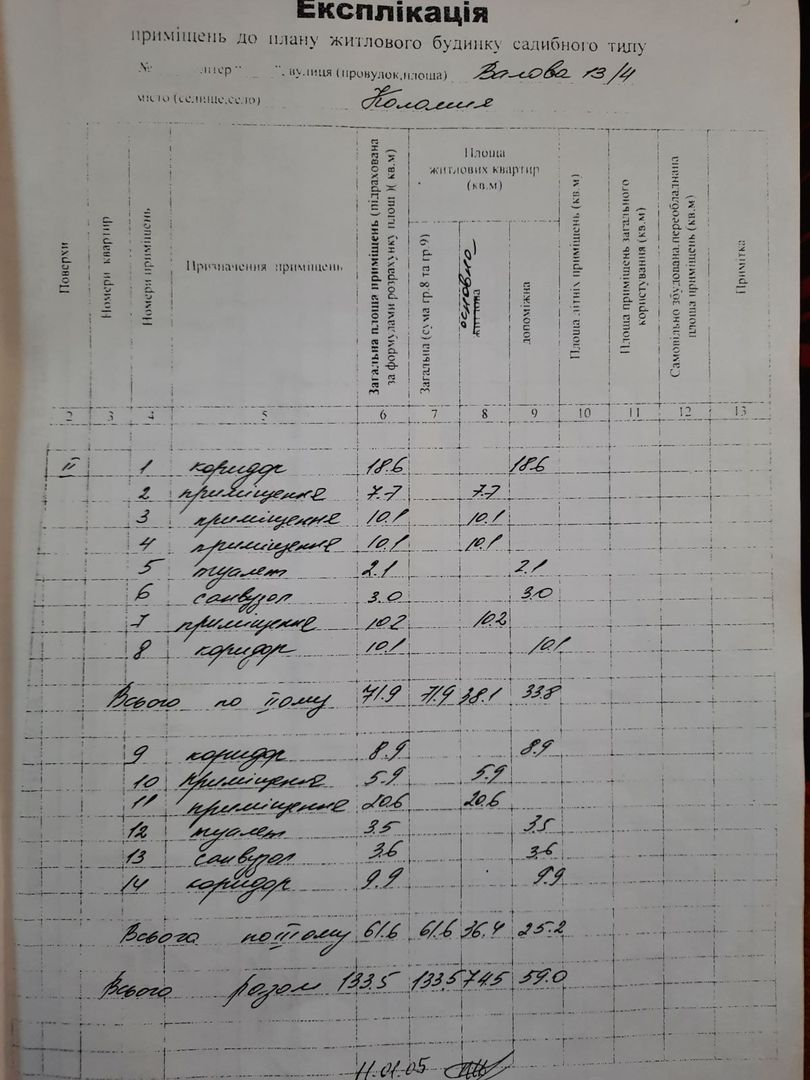 Експлікація
приміщень до плану житлового будинку садибного типу
№ літер " ", вулиця (провулок,площа) Валова 13/4
місто (селище,село) Коломия
Поверхи
Номери квартир
Номери приміщень
Призначення приміщень
Загальна площа приміщень (підрахована за формулами розрахунку площ)( кв.м)
Площа житлових квартир (кв.м)
Загальна (сума гр.8 та гр.9)
основна
житлова
допоміжна
Площа літніх приміщень (кв.м)
Площа приміщень загального користування (кв.м)
Самовільно збудована,переобладнана площа приміщень (кв.м)
Примітка
2 3 4 5 6 7 8 9 10 11 12 13
II 1 коридор 18.6 18.6
2 приміщення 7.7 7.7
3 приміщення 10.1 10.1
4 приміщення 10.1 10.1
5 туалет 2.1 2.1
6 санвузол 3.0 3.0
7 приміщення 10.2 10.2
8 коридор 10.1 10.1
Всього по IIому 71.9 71.9 38.1 33.8
9 коридор 8.9 8.9
10 приміщення 5.9 5.9
11 приміщення 20.6 20.6
12 туалет 3.5 3.5
13 санвузол 3.6 3.6
14 коридор 9.9 9.9
Всього по IIIому 61.6 61.6 36.4 25.2
Всього разом 133.5 133.5 74.5 59.0
11.01.05